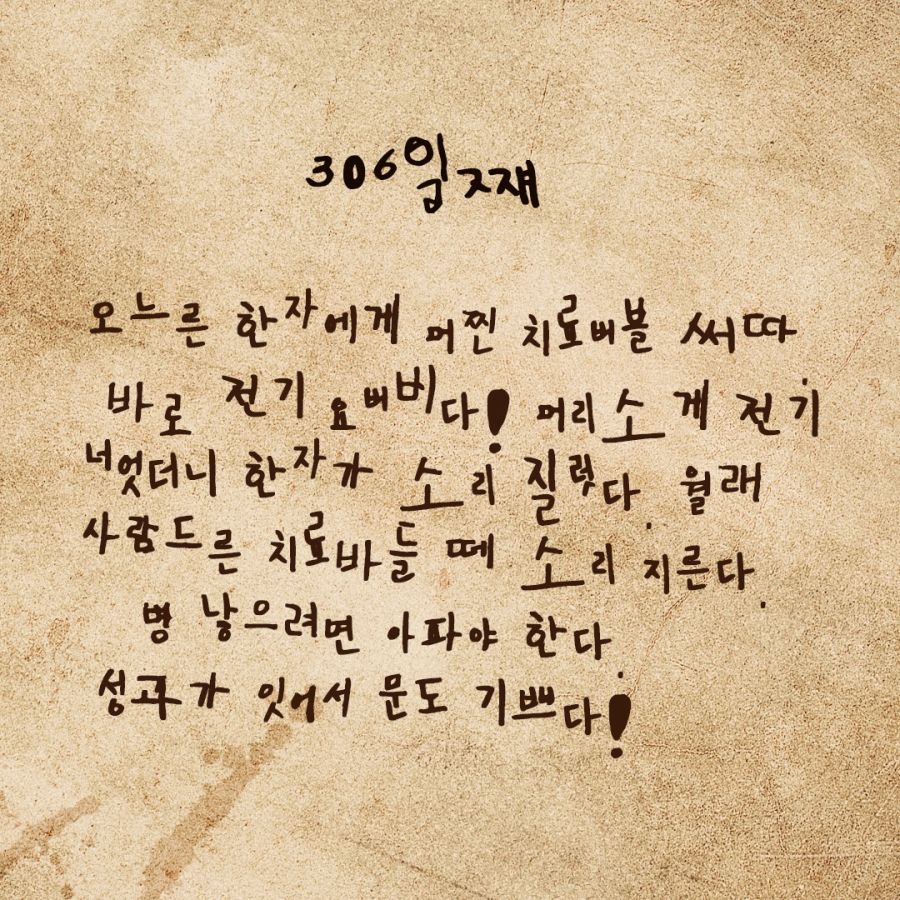 306일 째
오느른 한자에게 머찐 치료버블 써따
바로 전기 요버비다! 머리소게 전기
너엇더니 한자가 소리 질럿다. 월래
사람드른 치료바들 떼 소리 지른다.
병 낳으려면 아파야 한다.
성과가 잇어서 문도 기쁘다!